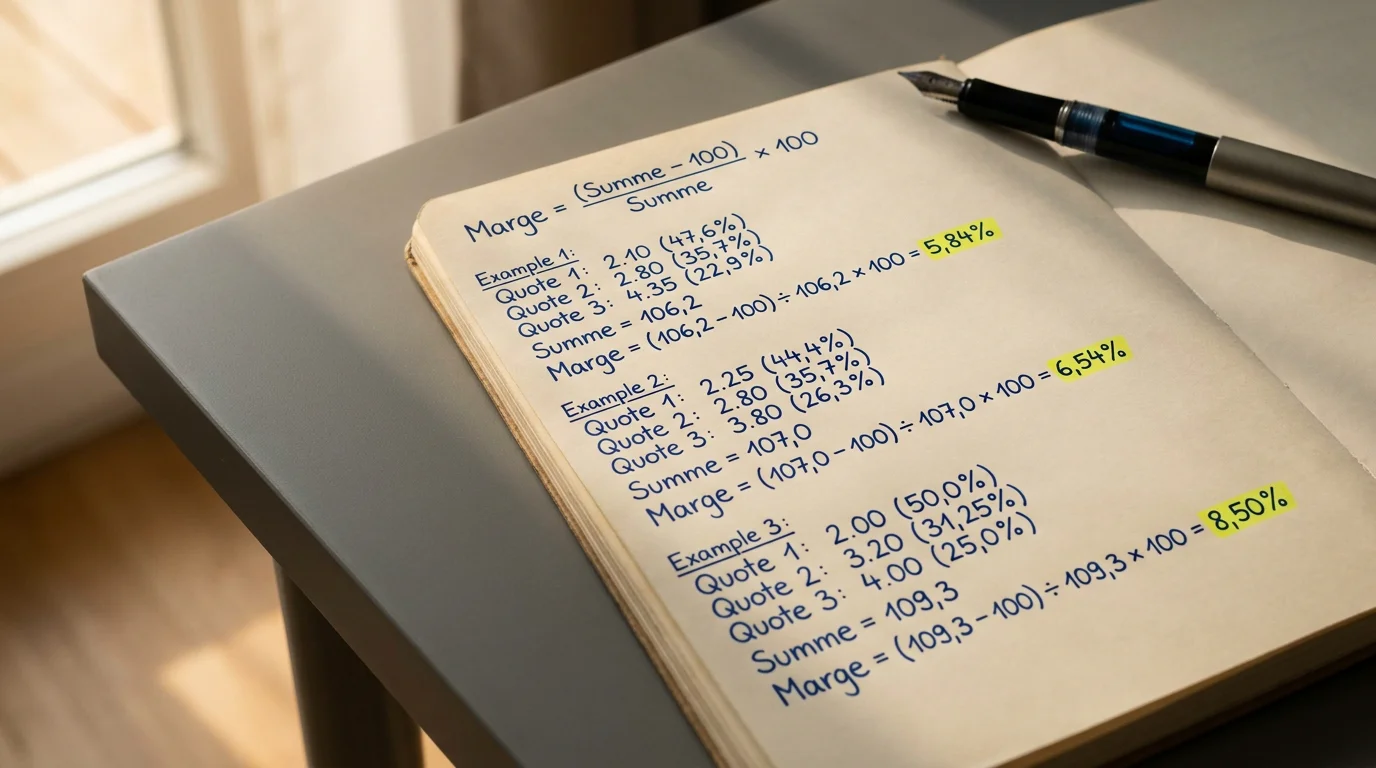 Marge = (Summe − 100) / Summe × 100
Example 1:
Quote 1: 2.10 (47,6%)
Quote 2: 2.80 (35,7%)
Quote 3: 4.35 (22,9%)
Summe = 106,2
Marge = (106,2 − 100) ÷ 106,2 × 100 = 5,84%
Example 2:
Quote 1: 2.25 (44,4%)
Quote 2: 2.80 (35,7%)
Quote 3: 3.80 (26,3%)
Summe = 107,0
Marge = (107,0 − 100) ÷ 107,0 × 100 = 6,54%
Example 3:
Quote 1: 2.00 (50,0%)
Quote 2: 3.20 (31,25%)
Quote 3: 4.00 (25,0%)
Summe = 109,3
Marge = (109,3 − 100) ÷ 109,3 × 100 = 8,50%